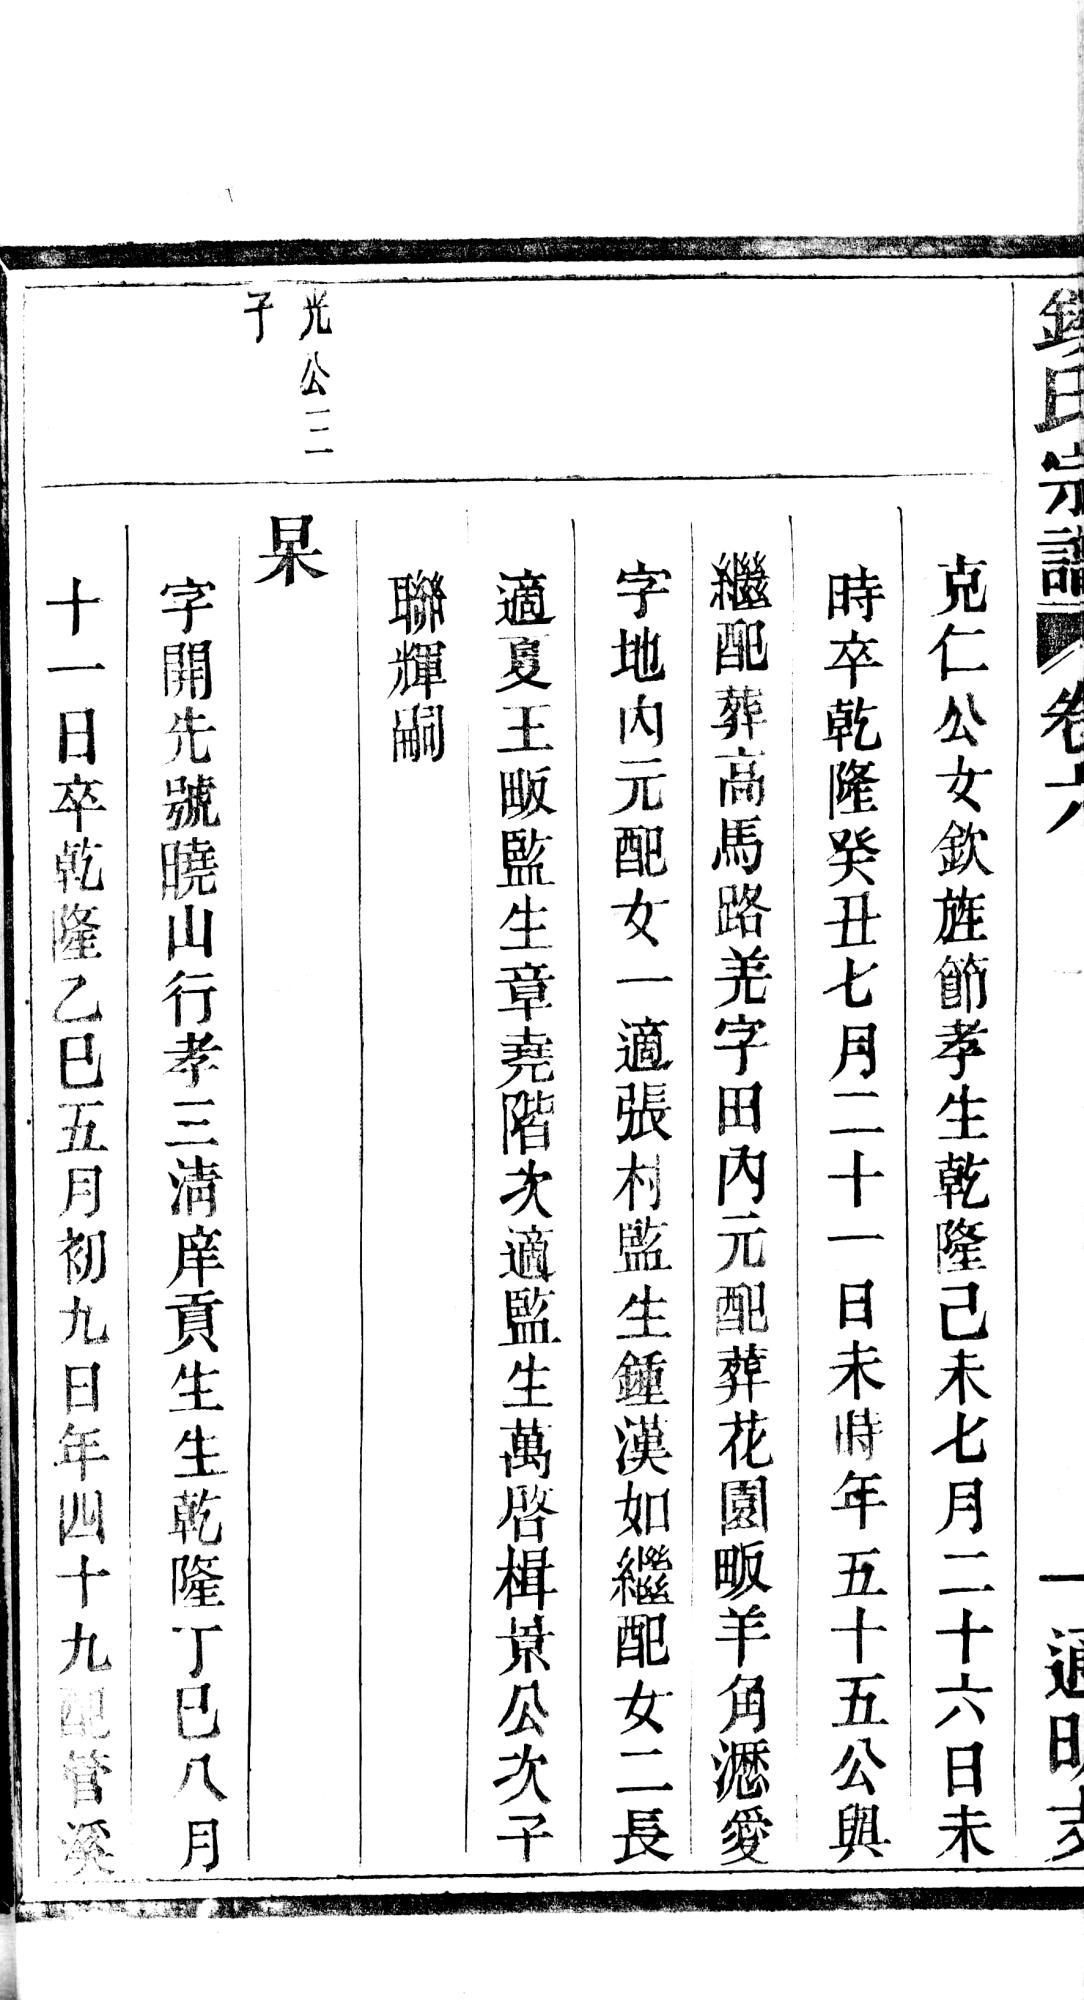 錢氏宗譜 卷六 一 通明支
克仁公女欽旌節孝生乾隆己未七月二十六日未
時卒乾隆癸丑七月二十一日未時年五十五公與
繼配葬高馬路羌字田內元配葬花園畈羊角瀝愛
字地內元配女一適張村監生鍾漢如繼配女二長
適夏王畈監生章堯階次適監生萬啓楫景公次子
聯輝嗣
光公三
子
杲
字開先號曉山行孝三淸庠貢生生乾隆丁巳八月
十一日卒乾隆乙巳五月初九日年四十九配管溪